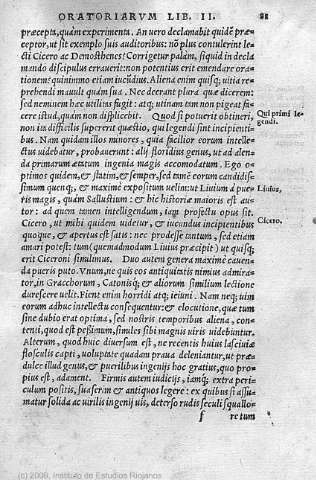 ORATORIARVM LIB. II. 81
præcepta, quàm experimenta. An uero declamabit quidē præ
ceptor, ut sit exemplo suis auditoribus: nō plus contulerint le
cti Cicero ac Demosthenes? Corrigetur palàm, siquid in decla
mando discipulus errauerit: non potentius erit emendare ora
tionem? quinimmo etiam iucūdius. Aliena enim quisq; uitia re
prehendi mauult quàm sua. Nec deerant plura quæ dicerem:
sed neminem hæc utilitas fugit: atq; utinam tam non pigeat fa
cere istud, quàm non displicebit. Quod si potuerit obtineri,
Qui primi le
gendi.
non ita difficilis supererit quæstio, qui legendi sint incipienti
bus. Nam quidam illos minores, quia facilior eorum intelle
ctus uidebatur, probauerunt: alij floridius genus, ut ad alen
da primarum ætatum ingenia magis accomodatum. Ego o-
ptimos quidem, & statim, & semper, sed tamē eorum candidis-
simum quenq;, & maximè expositum uelim: ut Liuium à pue
Liuius.
ris magis, quàm Sallustium: & hic historiæ maioris est au
ctor: ad quem tamen intelligendum, iam profectu opus sit.
Cicero, ut mihi quidem uidetur, & iucundus incipientibus
Cicero.
quoque, & apertus est satis: nec prodesse tantum, sed etiam
amari potest: tum (quemadmodum Liuius præcipit) ut quisq;
erit Ciceroni simillimus. Duo autem genera maximè cauen
da pueris puto. Vnum, ne quis eos antiquitatis nimius admira-
tor, in Gracchorum, Catonisq́; & aliorum similium lectione
durescere uelit. Fient enim horridi atq; ieiuni. Nam neq; uim
eorum adhuc intellectu consequentur: & elocutione, quæ tum
sine dubio erat optima, sed nostris temporibus aliena, con-
tenti, quod est peßimum, similes sibi magnis uiris uidebuntur.
Alterum, quod huic diuersum est, ne recentis huius lasciuiæ
flosculis capti, uoluptate quadam praua deleniantur, ut præ
dulce illud genus, & puerilibus ingenijs hoc gratius, quo pro
pius est, adament. Firmis autem iudicijs, iamq́; extra peri-
culum positis, suaserim & antiquos legere: ex quibus si assu-
matur solida ac uirilis ingenij uis, deterso rudis seculi squallo-
f re tum
(c) 2009, Instituto de Estudios Riojanos